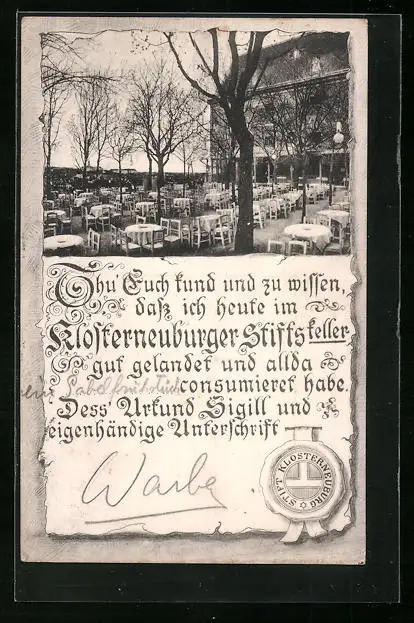 Thu' Euch kund und zu wissen,
daß ich heute im
Klosterneuburger Stiftskeller
gut gelandet und allda
ein Gabelfrühstück consumieret habe.
Dess' Urkund Sigill und
eigenhändige Unterschrift
STIFT KLOSTERNEUBURG